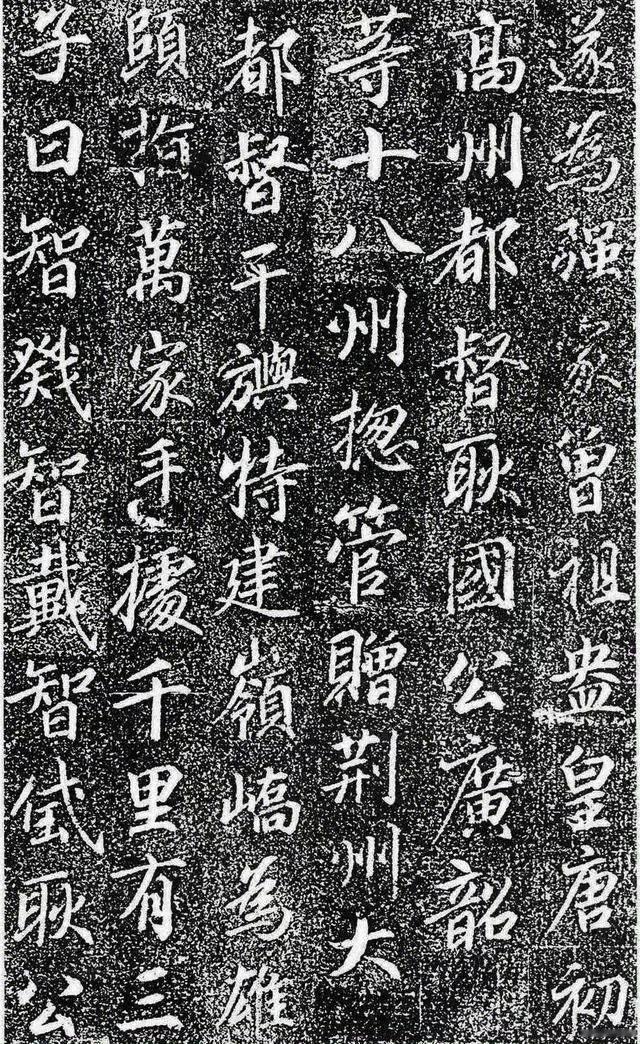 遂為强家曾祖盎皇唐初
高州都督耿國公廣韶
等十八州揔管贈荊州大
都督干旟特建嶺嶠為雄
頤指萬家手據千里有三
子曰智戣智戴智玳耿公